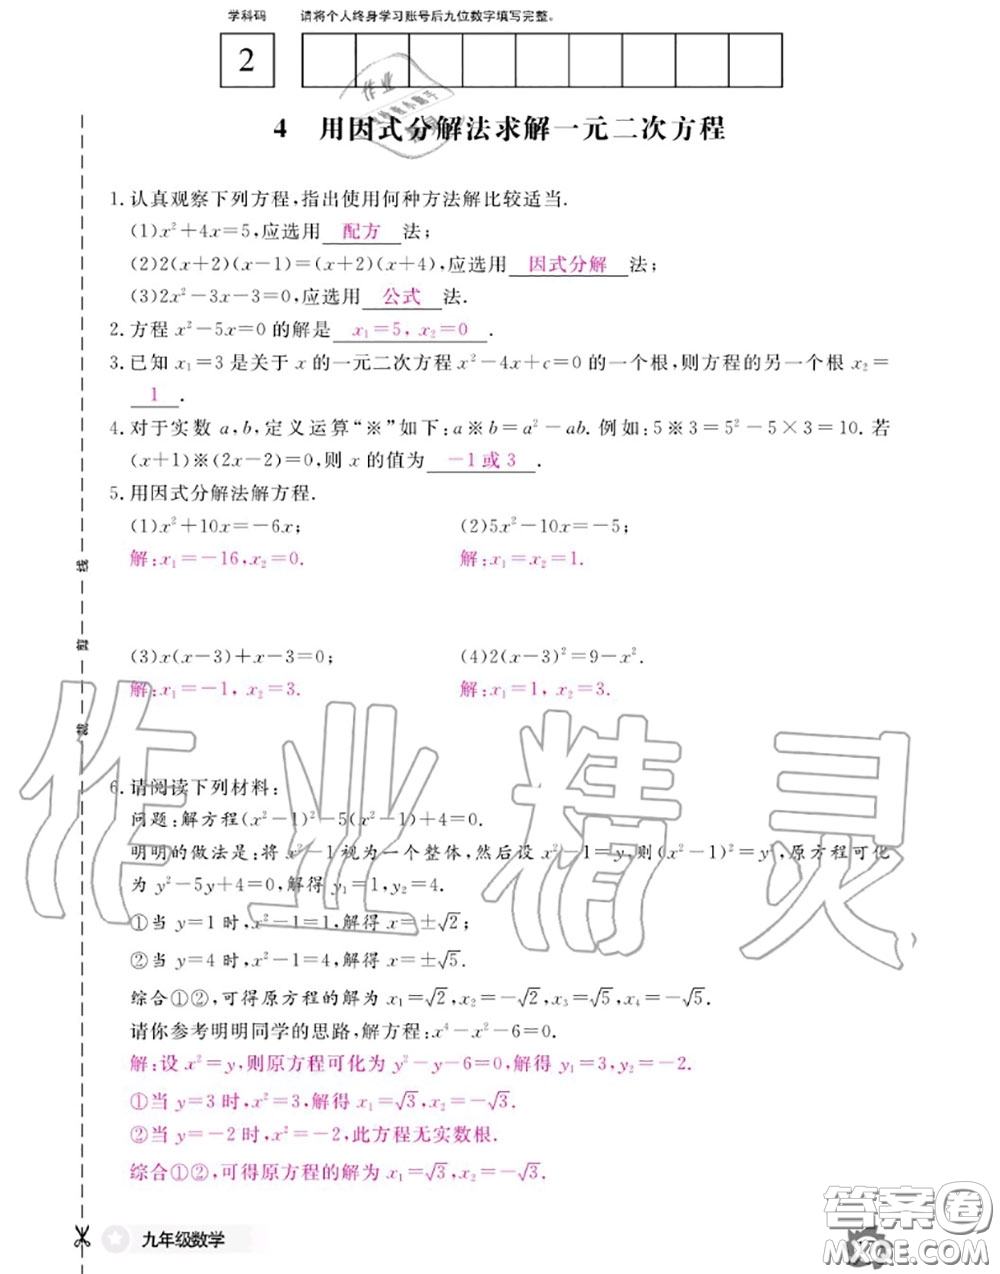 学科码 请将个人终身学习账号后九位数字填写完整。
2
4 用因式分解法求解一元二次方程
1. 认真观察下列方程,指出使用何种方法解比较适当.
(1)x²+4x=5,应选用 配方 法;
(2)2(x+2)(x-1)=(x+2)(x+4),应选用 因式分解 法;
(3)2x²-3x-3=0,应选用 公式 法.
2. 方程 x²-5x=0 的解是 x₁=5, x₂=0 .
3. 已知 x₁=3 是关于 x 的一元二次方程 x²-4x+c=0 的一个根,则方程的另一个根 x₂=
1 .
4. 对于实数 a,b,定义运算“※”如下:a※b=a²-ab. 例如:5※3=5²-5×3=10. 若
(x+1)※(2x-2)=0,则 x 的值为 -1或3 .
5. 用因式分解法解方程.
(1)x²+10x=-6x; (2)5x²-10x=-5;
解:x₁=-16,x₂=0. 解:x₁=x₂=1.
(3)x(x-3)+x-3=0; (4)2(x-3)²=9-x².
解:x₁=-1, x₂=3. 解:x₁=1, x₂=3.
6. 请阅读下列材料:
问题:解方程(x²-1)²-5(x²-1)+4=0.
明明的做法是:将 x²-1 视为一个整体,然后设 x²-1=y,则(x²-1)²=y²,原方程可化
为 y²-5y+4=0,解得 y₁=1,y₂=4.
①当 y=1 时,x²-1=1,解得 x=±√2;
②当 y=4 时,x²-1=4,解得 x=±√5.
综合①②,可得原方程的解为 x₁=√2,x₂=-√2,x₃=√5,x₄=-√5.
请你参考明明同学的思路,解方程:x⁴-x²-6=0.
解:设 x²=y,则原方程可化为 y²-y-6=0,解得 y₁=3,y₂=-2.
①当 y=3 时,x²=3,解得 x₁=√3,x₂=-√3.
②当 y=-2 时,x²=-2,此方程无实数根.
综合①②,可得原方程的解为 x₁=√3,x₂=-√3.
裁 剪 线
作业精灵
九年级数学
答案圈
MXQE.COM